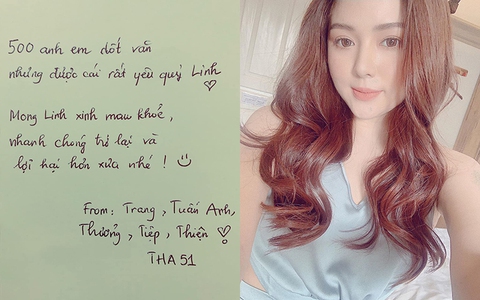 500 anh em dốt văn
nhưng được cái rất yêu quý Linh
Mong Linh xinh mau khoẻ,
nhanh chóng trở lại và
lợi hại hơn xưa nhé !
From: Trang, Tuấn Anh,
Thương, Tiệp, Thiện
THA 51